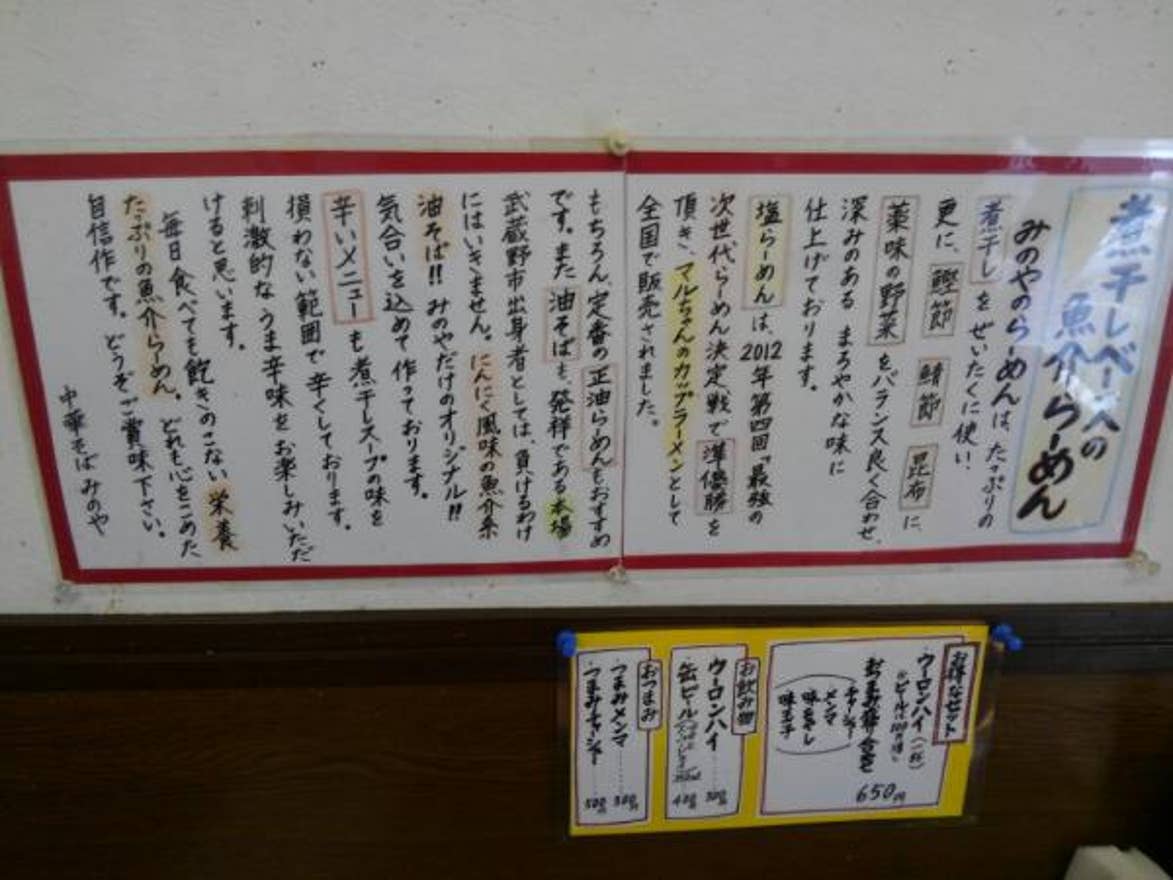 煮干しベースの
魚介らーめん
みのやのらーめんは、たっぷりの
煮干しをぜいたくに使い、
更に、鰹節 鯖節 昆布に、
薬味の野菜をバランス良く合わせ、
深みのある まろやかな味に
仕上げております。
塩らーめんは、2012年第四回「最強の
次世代らーめん決定戦で準優勝を
頂き、マルちゃんのカップラーメンとして
全国で販売されました。
もちろん、定番の正油らーめんもおすすめ
です。また油そばも、発祥である本場
武蔵野市出身者としては、負けるわけ
にはいきません。にんにく風味の魚介系
油そば!! みのやだけのオリジナル!!
気合いを込めて作っております。
辛いメニューも煮干しスープの味を
損わない範囲で辛くしております。
刺激的なうま辛味をお楽しみいただ
けると思います。
毎日食べても飽きのこない栄養
たっぷりの魚介らーめん。どれも心をこめた
自信作です。どうぞご賞味下さい。
中華そばみのや
お得なセット
・ウーロンハイ(一杯)
おつまみ盛り合せ
チャーシュー
メンマ
味玉子
650円
お飲み物
ウーロンハイ……300円
缶ビール 400円
おつまみ
・つまみメンマ……300円
・つまみチャーシュー……500円